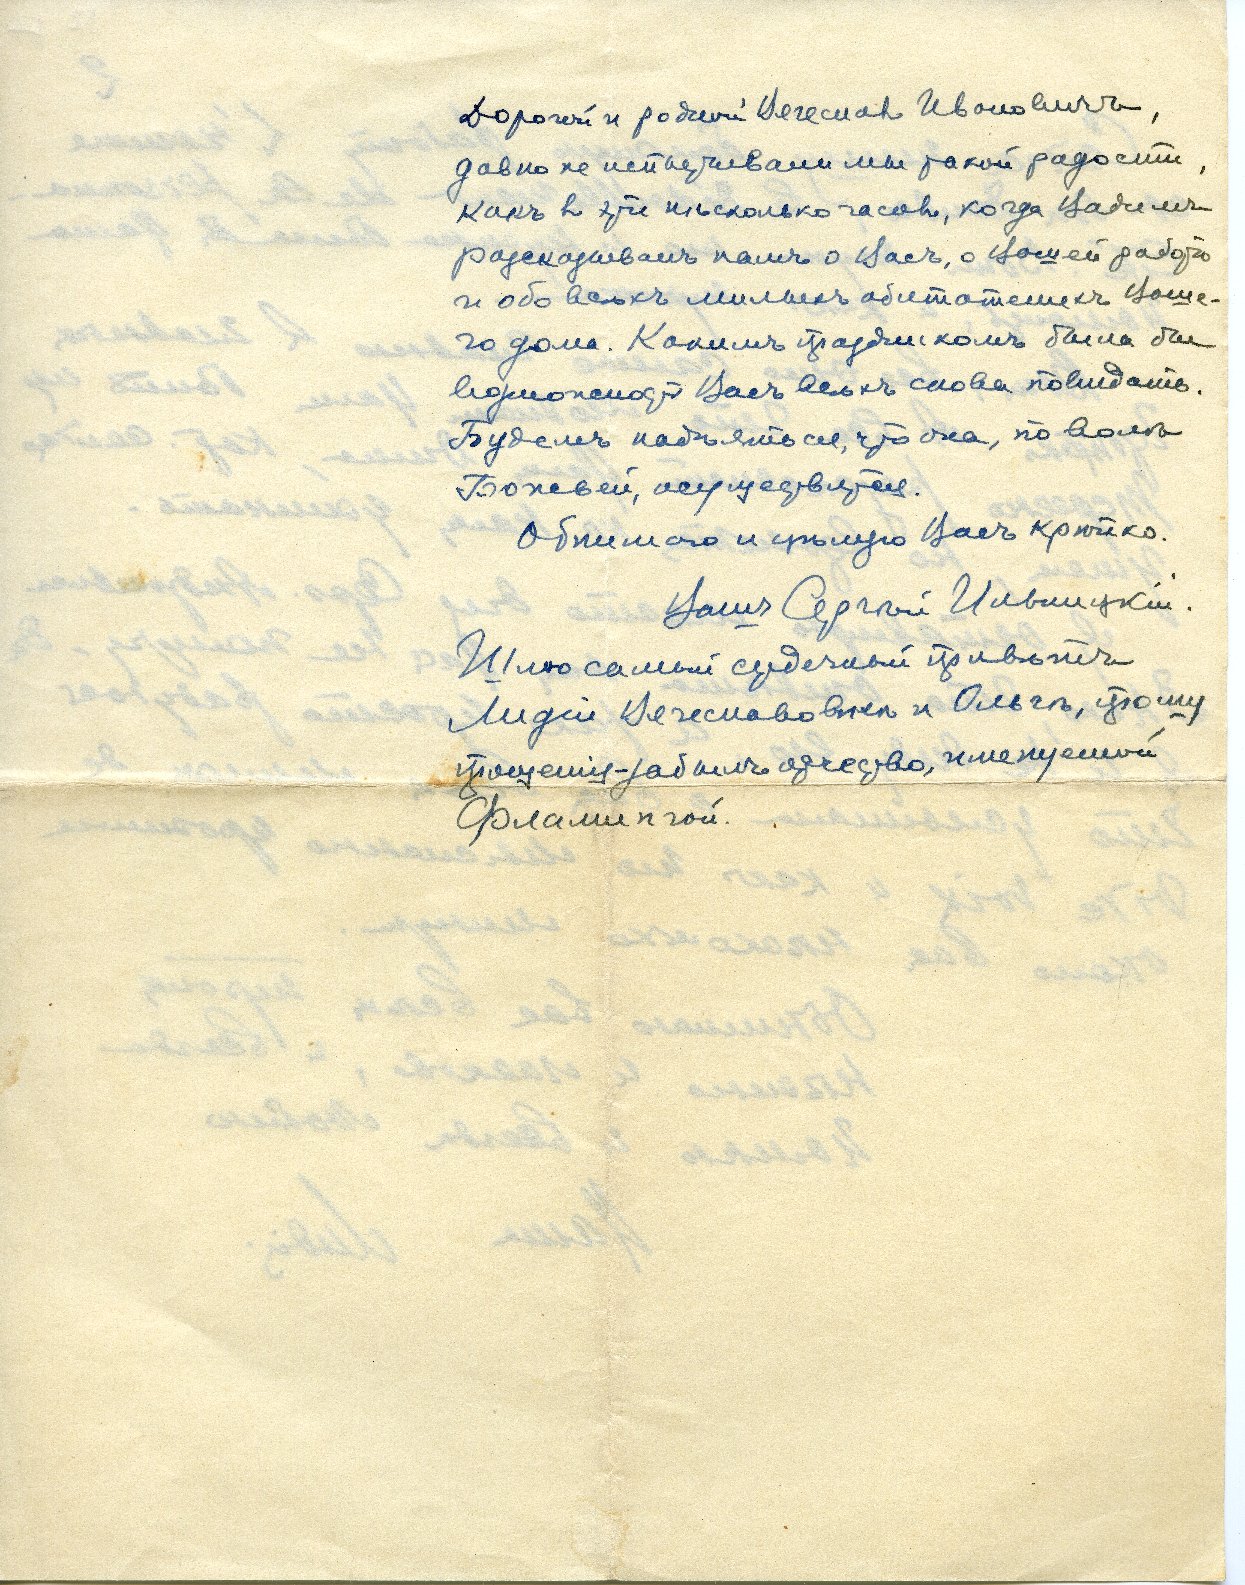 Дорогой и родной Вячеслав Ивановичъ,
давно не испытывали мы такой радости,
какъ в эти нѣсколько часов, когда Вадимъ
разсказывалъ намъ о Васъ, о Вашей работѣ
и обо всѣхъ милыхъ обитателяхъ Ваше-
го дома. Какимъ праздникомъ была бы
возможность Васъ всѣхъ снова повидать.
Будемъ надѣяться, что она, по волѣ
Божьей, осуществится.
Обнимаю и цѣлую Васъ крѣпко.
Вашъ Сергѣй Ильницкій.
Шлю самый сердечный привѣтъ
Лидіи Вячеславовнѣ и Ольгѣ, прошу
прощенія-забылъ отчество, именуемой
Фламингой.